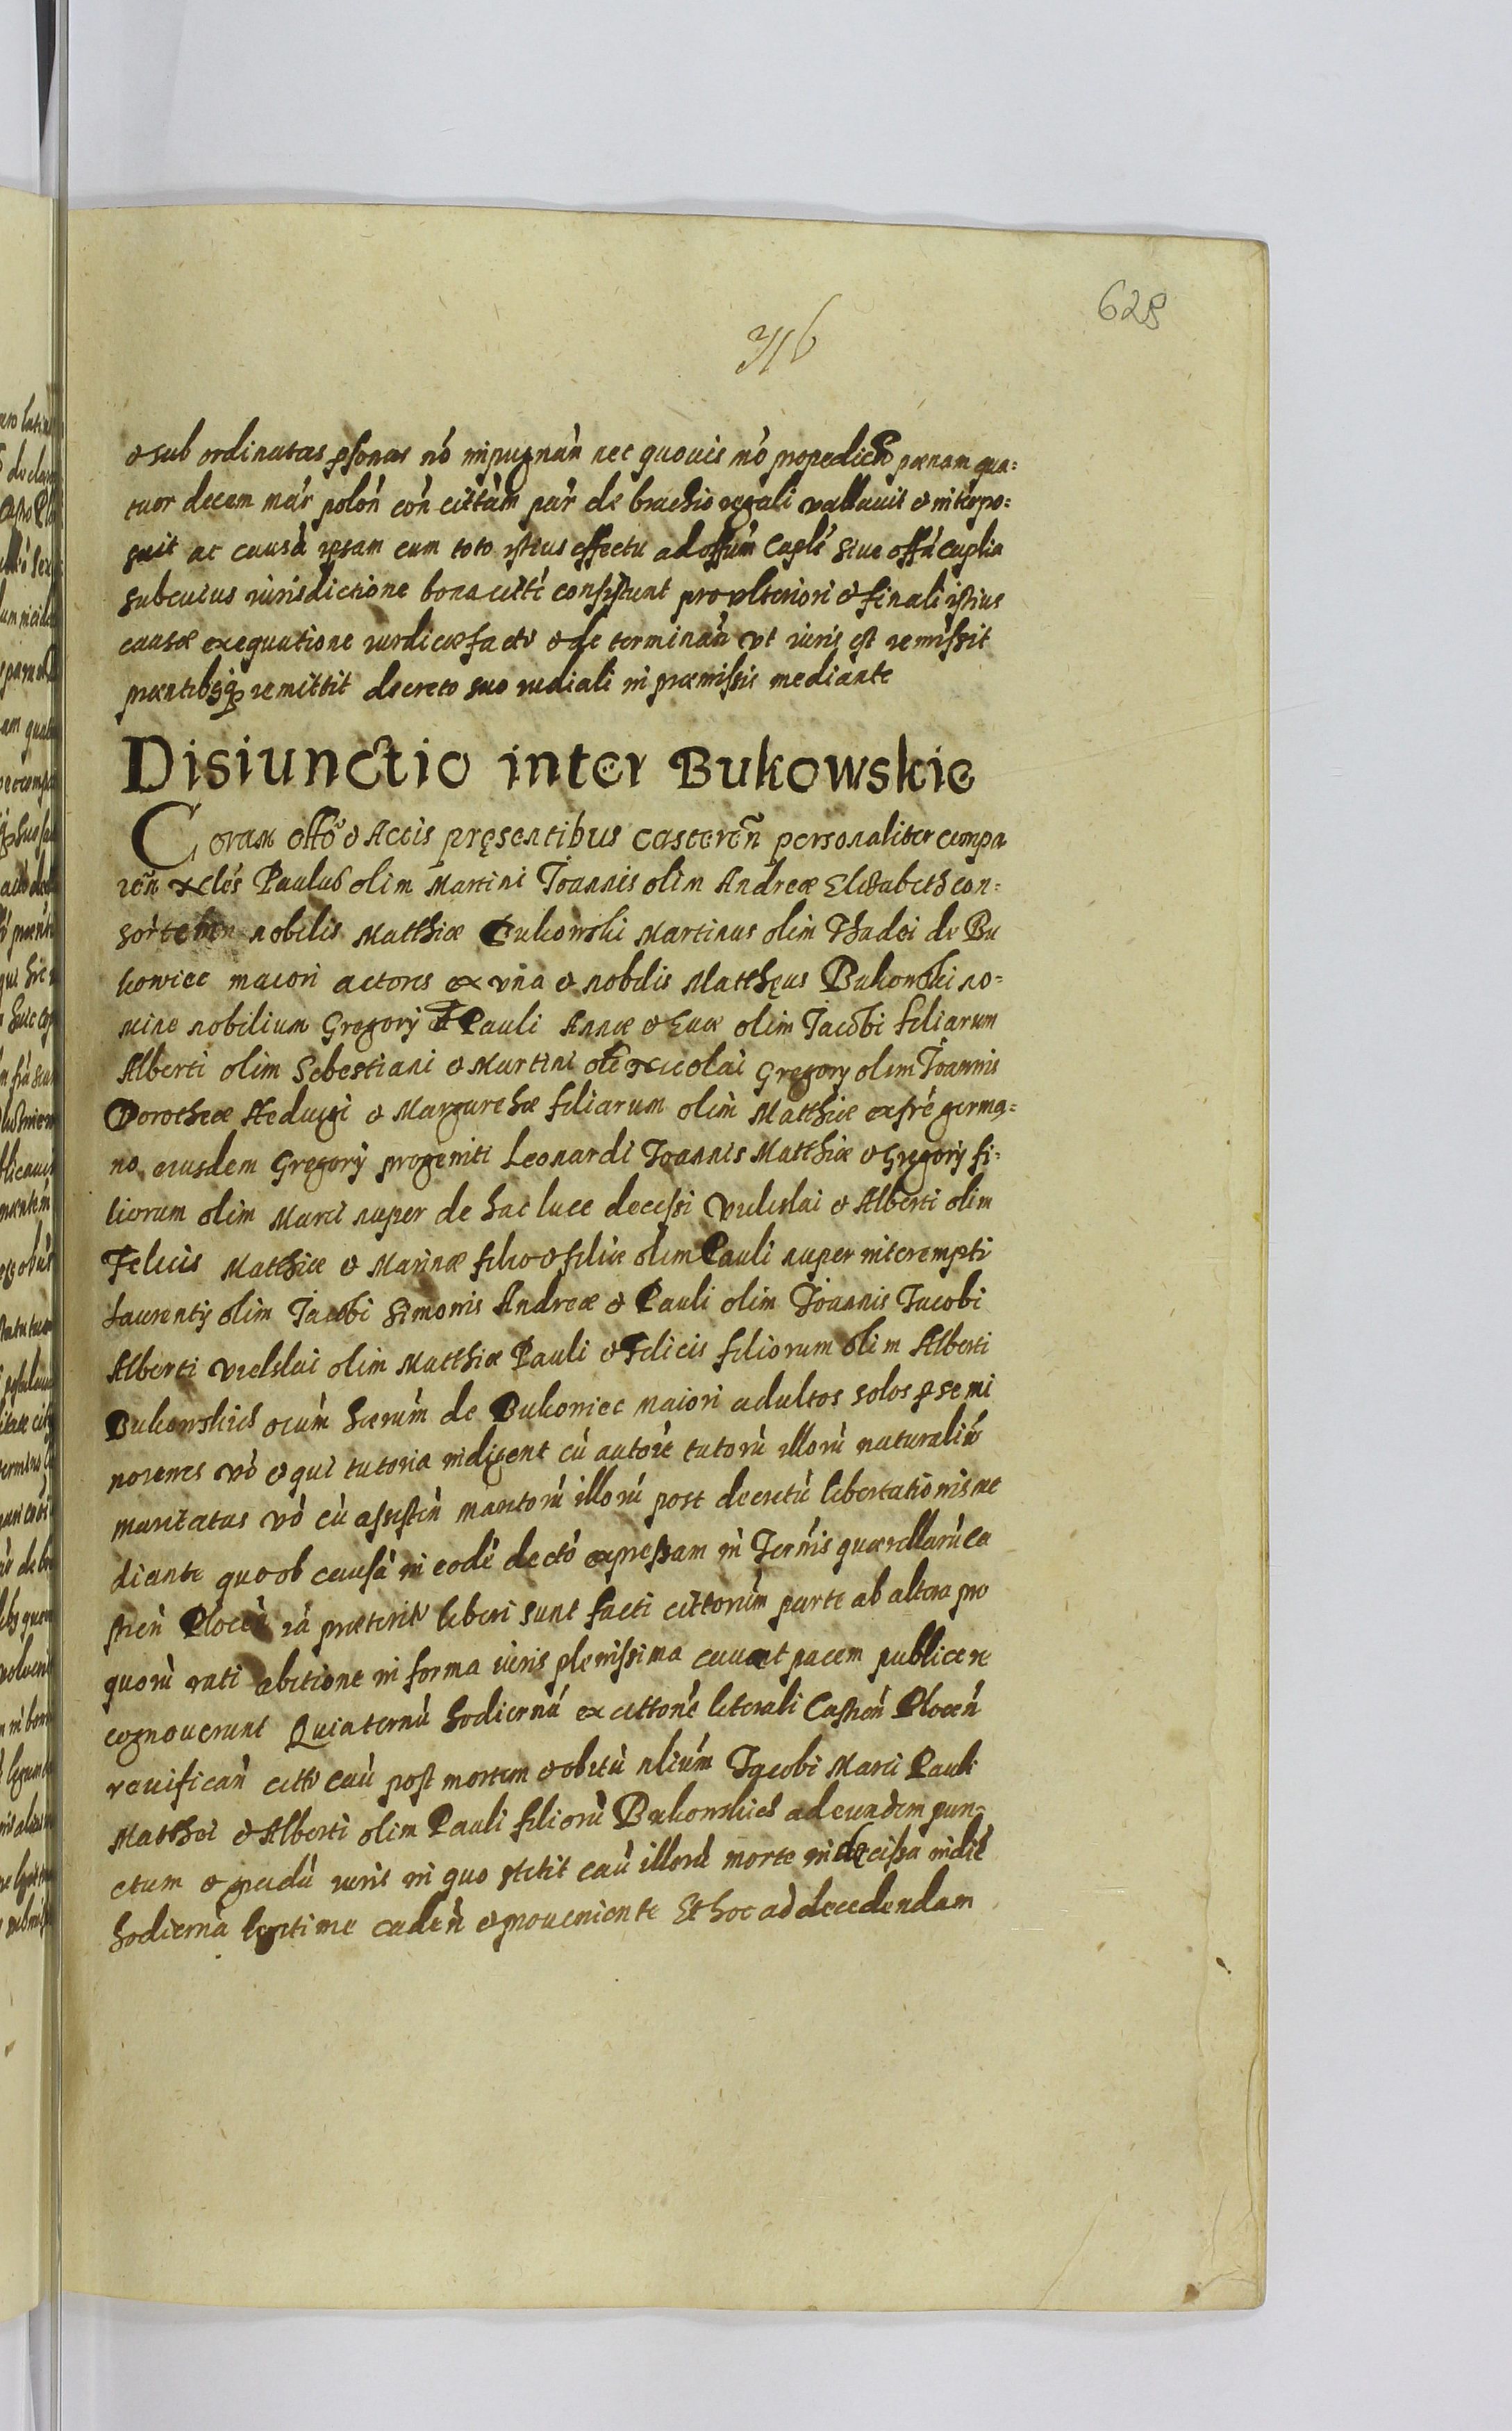 628
316
& sub ordinatas psonas nó impugnań nec quovis mó propedień pœnam qua=
tuor decem mar polon con cittam par de brachio regali vallavit & interpo=
suit ac causã ipsam cum toto istius effectu ad offum Caple sive offa Caplia
sub cuius iurisdictione bona citti consistunt pro ulteriori & finali istius
causæ exequutione iurdicæ facto & de terminan ut iuris est remissit
præntibsq remittit decreto suo iudiali in præmissis mediante
Disiunctio inter Bukowskie
Coram offo & Actis pręsentibus casteren personaliter compa
ren Paulus olim Martini Joannis olim Andreæ Elizabeth con=
sortem nobilis Matthiæ Bukowski Martinus olim Thadei de Bu
kowiec maiori actores ex una & nobilis Matthęus Bukowski no=
mine nobilium Gregorij & Pauli Annæ & Evæ olim Jacobi filiarum
Alberti olim Sebestiani & Martini Nicolai Gregorij olim Joannis
Dorotheæ Hedvigi & Margarethæ filiarum olim Matthiæ ex fre germa=
no eiusdem Gregorij progeniti Leonardi Joannis Matthiæ & Gregorij fi=
liorum olim Marci nuper de hac luce decessi & Alberti olim
Felicis Matthiæ & Marinæ filio & filiæ olim Pauli nuper interempti
Laurentij olim Jacobi Simonis Andreæ & Pauli olim Joannis Jacobi
Alberti olim Matthiæ Pauli & Felicis filiorum olim Alberti
Bukowskich ocum hærum de Bukowiec maiori adultos solos p se mi
norenes vo & qui tutoria indigent cu autore tutoru illoru naturaliu
maritatas vo cu assisten maritoru illoru post decretu libertationis me
diante quo ob causã in eode decto expressam in Ternis quærellaru ca
stren Plocen ra præterit liberi sunt facti cittorum parte ab altera pro
quoru rati in forma iuris plenissima cavent pacem publice re
cognoverunt Quia ternu hodiernu ex cittone literali Castren Plocen
ravifican citti cau post mortem & obitu nlium Jacobi Marci Pauli
Matthei & Alberti olim Pauli filioru Bukowskich ad eundem pun=
ctum & gradu iuris in quo stetit cau illoru morte indecissa in die
hodierna legitime caden & proveniente Et hoc ad decedendam